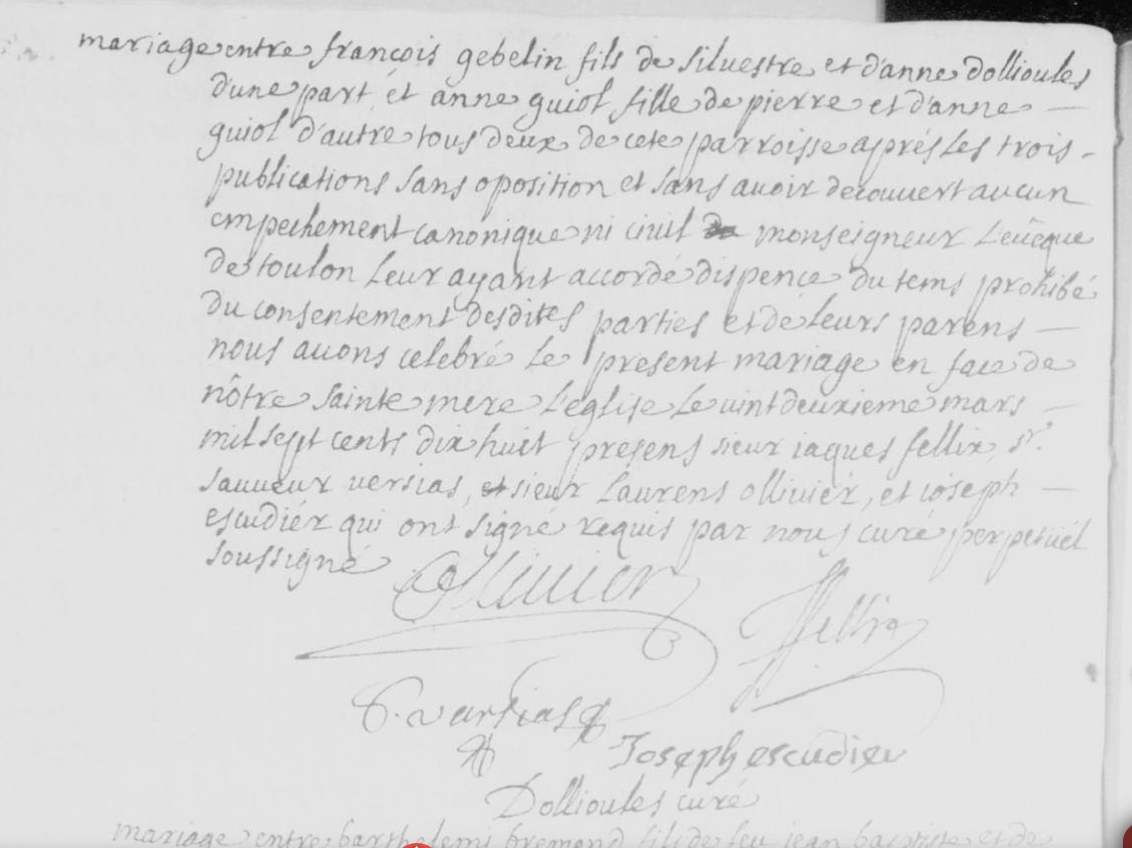 mariage entre françois gebelin fils de silvestre et d'anne dollioules
d'une part, et anne guiol fille de pierre et d'anne —
guiol d'autre tous deux de cete parroisse aprés les trois -
publications sans oposition et sans avoir decouvert aucun
empechement canonique ni civil monseigneur l'evêque
de toulon leur ayant accordé dispence du tems prohibé
du consentement desdites parties et de leurs parens —
nous avons celebré le present mariage en face de
nôtre sainte mere l'eglise le vint deuxieme mars —
mil sept cents dix huit presens sieur iaques fellix, sr.
sauveur versias, et sieur laurens ollivier, et ioseph —
escudiér qui ont signé requis par nous curé perpetuel
soussigné
Ollivier
ffellix
varsias
Joseph escudier
Dollioules curé
mariage entre barthelemi bremond fils de feu jean baptiste et de